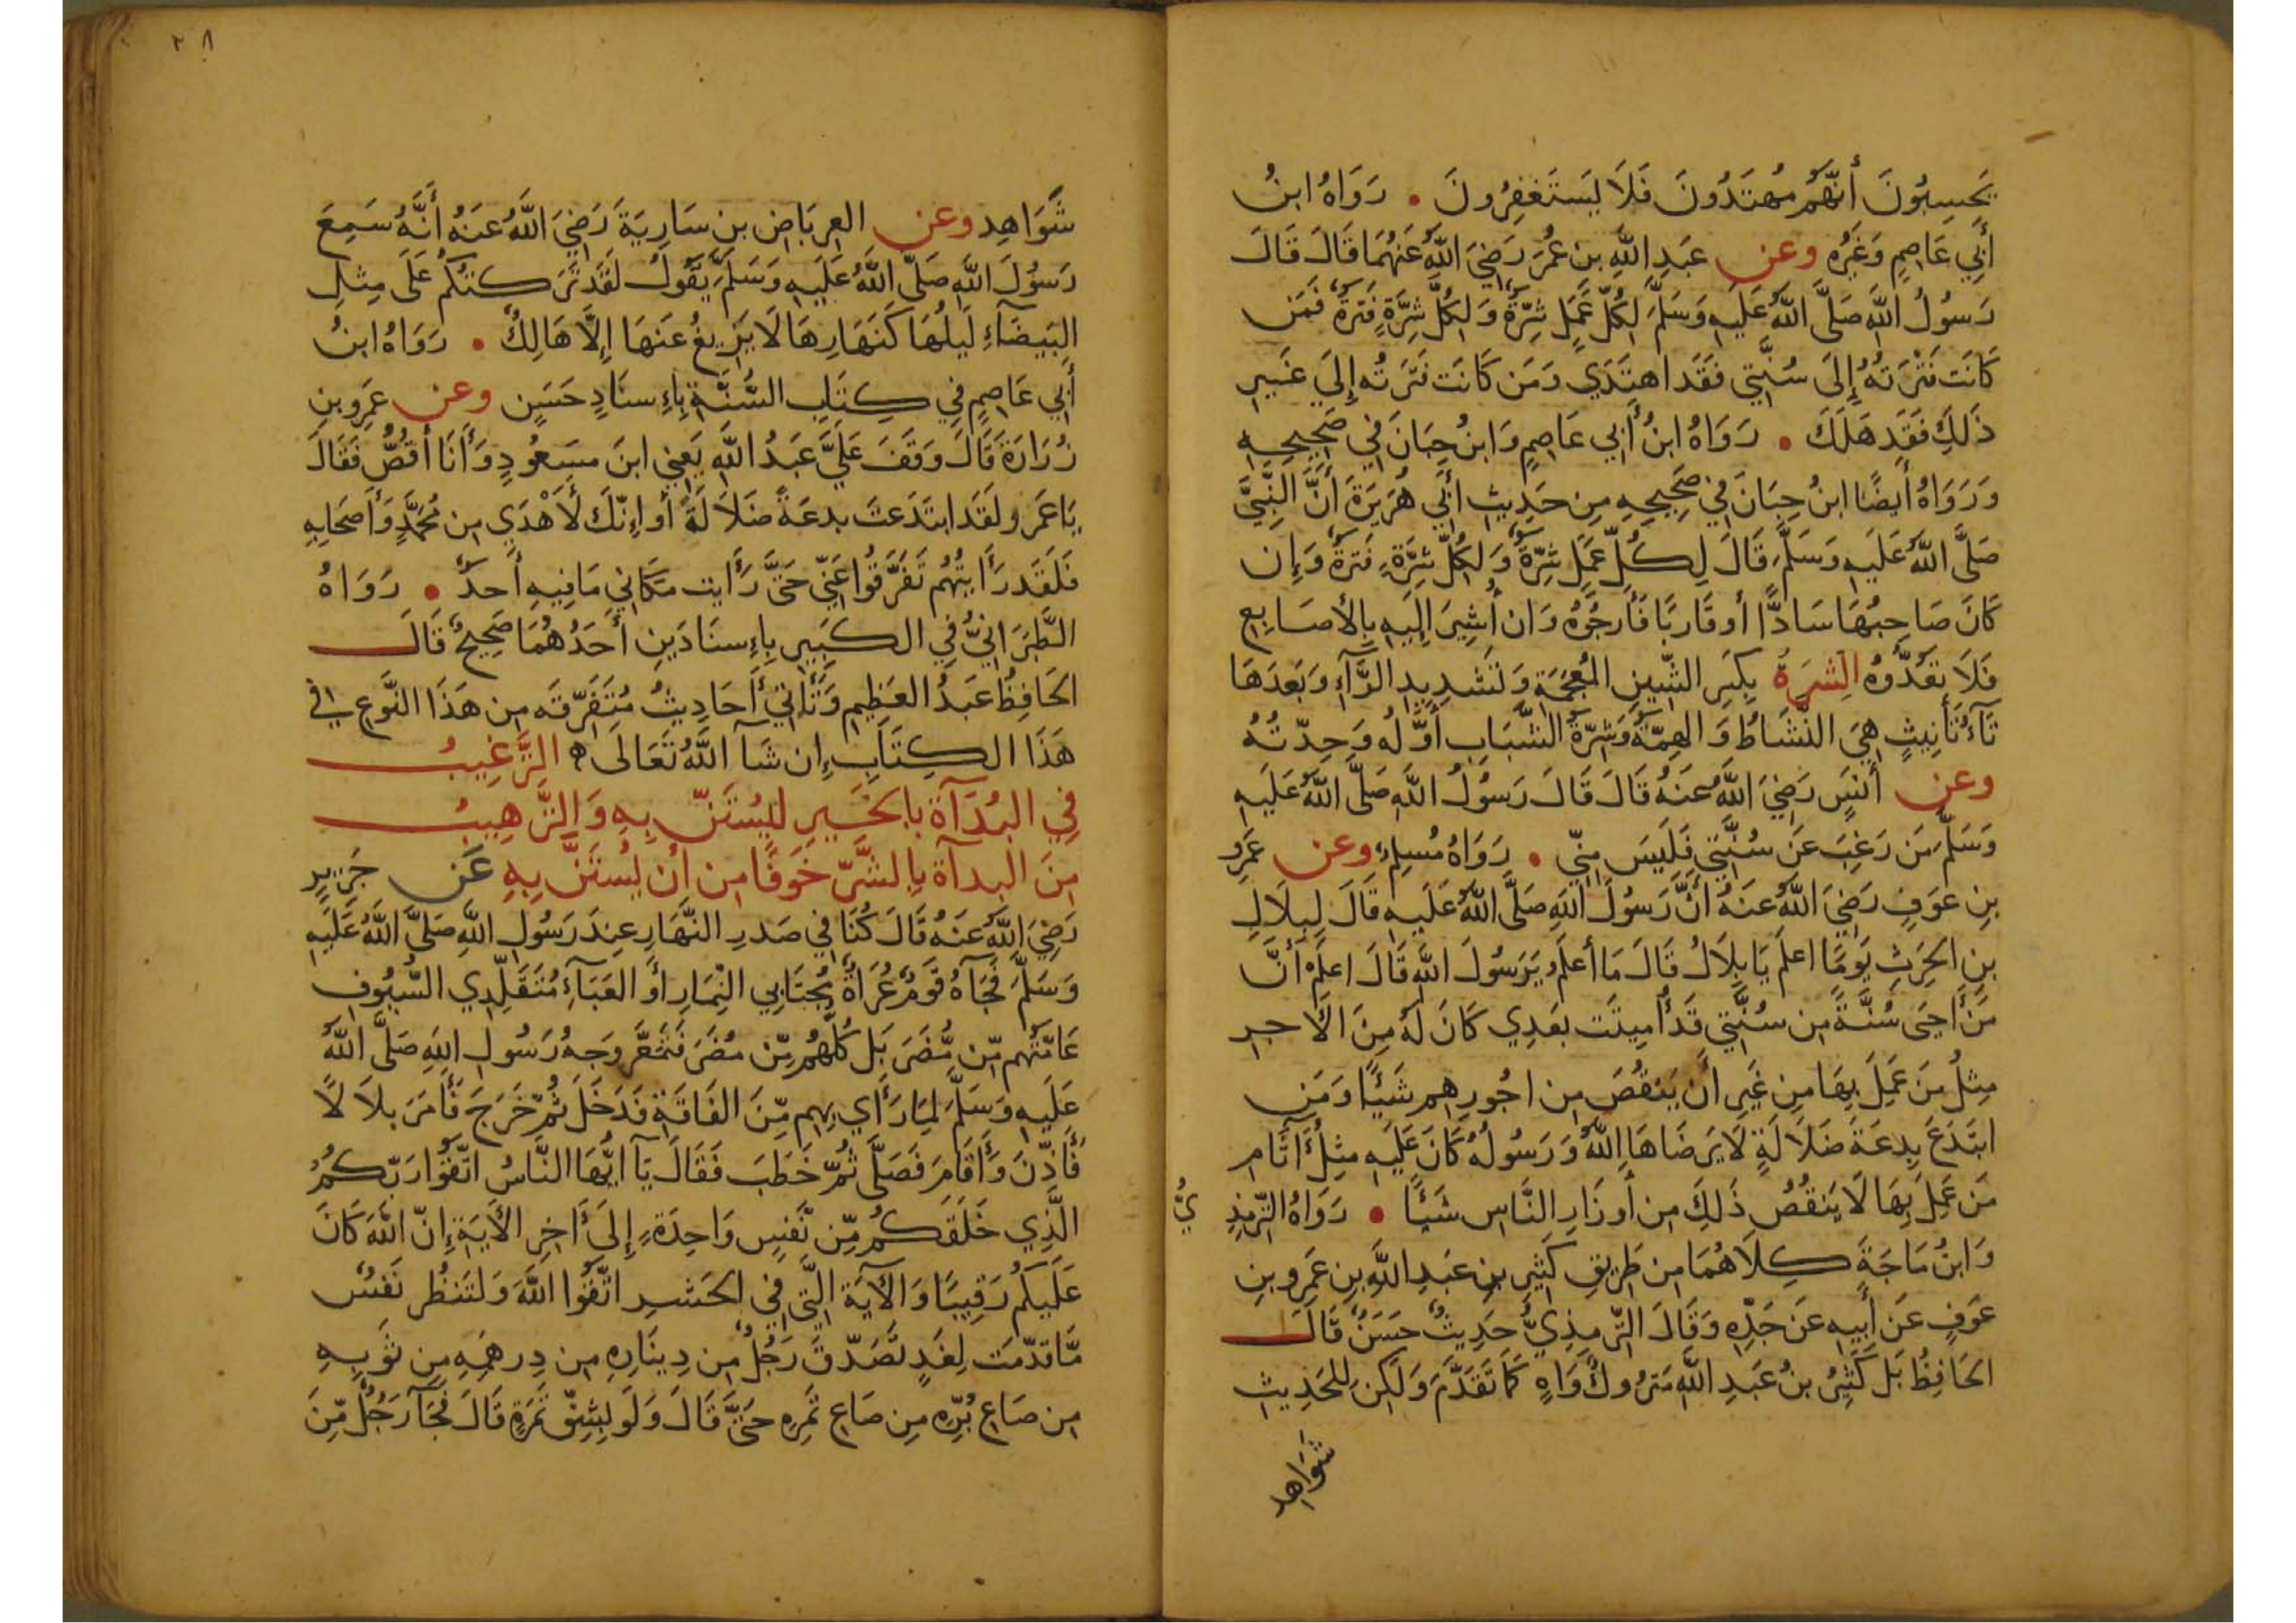 يَحسِبُونَ أَنَّهُم مُهتَدُونَ فَلَا يَستَغفِرُونَ . رَوَاهُ ابنُ
أَبِي عَاصِمٍ وَغَيرُه وعن عَبدِ اللَّهِ بنِ عُمَرَ رَضِيَ اللَّهُ عَنهُمَا قَالَ قَالَ
رَسُولُ اللَّهِ صَلَّى اللَّهُ عَلَيهِ وَسَلَّمَ لِكُلِّ عَمَلٍ شِرَّةٌ وَلِكُلِّ شِرَّةٍ فَترَةٌ فَمَن
كَانَت فَتْرَتُهُ إِلَى سُنَّتِي فَقَد اهتَدَي وَمَن كَانَت فَترَتُه إِلَي غَيرِ
ذَلِكَ فَقَد هَلَكَ . رَوَاهُ ابنُ أَبِي عَاصِمٍ وَابنُ حِبَانَ فِي صَحِيحِهِ
وَرَوَاهُ أَيضًا ابنُ حِبَانَ فِي صَحِيحِهِ مِن حَدِيثِ أَبِي هُرَيرَةَ أَنَّ النَّبِيَّ
صَلَّى اللَّهُ عَلَيهِ وَسَلَّمَ قَالَ لِكُلِّ عَمَلٍ شِرَّةٌ وَلِكُلِّ شِرَّةٍ فَترَةٌ وَإِن
كَانَ صَاحِبُهَا سَادًّا أو قَارَبًا فَأَرجُوهُ وَان أُشِيرَ إِلَيهِ بِالأَصَابِعِ
فَلَا تَعُدُّوُه الشِرَةُ بِكَسرِ الشِّينِ المُعجَمَةِ وَتَشدِيدِ الرَّآءِ وَبَعدَهَا
تَآءُ تَأنِيثٍ هِيَ النَّشَاطُ وَالهِمَّةُ وَشِرَّةُ الشَّبَابِ أَوَّلُه وَحِدَّتُهُ
وعن أَنَسٍ رَضِيَ اللَّهُ عَنهُ قَالَ قَالَ رَسُولُ اللَّهِ صَلَّى اللَّهُ عَلَيهِ
وَسَلَّمَ مَن رَغِبَ عَن سُنَّتِي فَلَيسَ مِنِّي . رَوَاهُ مُسلِم وعن عَمرِو
بنِ عَوفٍ رَضِيَ اللَّهُ عَنهُ أَنَّ رَسُولَ اللَّهِ صَلَّى اللَّهُ عَلَيهِ قَالَ لِبِلَالِ
بنِ الحَرِثِ يَومًا اعلَم يَا بِلَالُ قَالَ مَا أَعلَمُ يَرَسُولَ اللَّهِ قَالَ اعلَم أَنَّ
مَن أَحيَى سُنَّةً مِن سُنَّتِي قَد أُمِيتَت بَعدِي كَانَ لَهُ مِنَ الأَجرِ
مِثلُ مَن عَمِلَ بِهَا مِن غَيرِ أَن يَنقُصَ مِن اجُورِهِم شَيئًا وَمَن
ابتَدَعَ بِدعَةَ ضَلَالَةٍ لَا يَرضَاهَا اللَّهُ وَرَسُولُهُ كَانَ عَلَيهِ مِثلُ أَثَامِ
مَن عَمِلَ بِهَا لَا يَنقُصُ ذَلِكَ مِن أَوزَارِ النَّاسِ شَيئًا . رَوَاهُ التِّرمِذِيُّ
وَابنُ مَاجَةَ كِلَاهُمَا مِن طَرِيقِ كَثِيرِ بنِ عَبدِ اللَّهِ بنِ عَمرِو بنِ
عَوفٍ عَن أَبِيهِ عَن جَدِّهِ وَقَالَ التِّرمِذِيُّ حَدِيثٌ حَسَنٌ قَالَ
الحَافِظُ بَل كَثِيرُ بنُ عَبدِ اللَّهِ مَترُوكٌ وَاهٍ كَمَا تَقَدَّمَ وَلَكِن لِلحَدِيثِ
شَوَاهِد
٢٨
شَوَاهِد وعن العِربَاضِ بنِ سَارِيَةَ رَضِيَ اللَّهُ عَنهُ أَنَّهُ سَمِعَ
رَسُولَ اللَّهِ صَلَّى اللَّهُ عَلَيهِ وَسَلَّمَ يَقُولُ لَقَد تَرَكتُكُم عَلَى مِثلِ
البَيضَآءِ لَيلُهَا كَنَهَارِهَا لَا يَزِيغُ عَنهَا إِلَّا هَالِكٌ . رَوَاهُ ابنُ
أَبِي عَاصِمٍ فِي كِتَابِ السُّنَّةِ بِإِسنَادٍ حَسَنٍ وعن عَمرِو بنِ
زُرَارَةَ قَالَ وَقَفَ عَلَيَّ عَبدُ اللَّهِ يَعنِي ابنَ مَسعُودٍ وَأَنَا أَقُصُّ فَقَالَ
يَا عَمرو لَقَد ابتَدَعتَ بِدعَةً ضَلَالَةً أو إِنَّكَ لَأَهْدَي مِن مُحَمَّدٍ وَأَصحَابِهِ
فَلَقَد رَأَيتُهُم تَفَرَّقُوا عَنِّي حَتَّى رَأَيت مَكَانِي مَا فِيهِ أَحدٌ . رَوَاهُ
الطَّبَرَانِيُّ فِي الكَبِيرِ بِإِسنَادَينِ أَحَدُهُمَا صَحِيحٌ قَالَ
الحَافِظُ عَبدُ العَظِيمِ وَتَأتِي أَحَادِيثُ مُتَفَرِّقَه مِن هَذَا النَّوعِ فِي
هَذَا الكِتَابِ إِن شَآ اللَّهُ تَعَالَى ه التَّرغِيبُ
فِي البُدَآة بِالخَيرِ لِيُستَنَّ بِهِ وَالتَّرهِيبُ
مِنَ البدآة بِالشَّرِّ خَوفًا مِن أَن يُستَنَّ بِهِ عَن جَرِيرٍ
رَضِيَ اللَّهُ عَنهُ قَالَ كُنَا فِي صَدرِ النَّهَارِ عِندَ رَسُولِ اللَّهِ صَلَّى اللَّهُ عَلَيهِ
وَسَلَّمَ فَجَآهُ قَومٌ عُرَاةٌ مُجتَابِي النِّمَارِ أَو العَبَآءِ مُتَقَلِّدِي السُّيُوفِ
عَامَّتُهُم مِّن مُّضَرَ بَل كُلُّهُم مِّن مُضَرَ فَتَمَعَّرَ وَجهُ رَسُولِ اللَّهِ صَلَّى اللَّهُ
عَلَيهِ وَسَلَّمَ لِمَا رَأَي بِهِم مِّنَ الفَاقَةِ فَدَخَلَ ثُمَّ خَرَجَ فَأَمَرَ بِلَالًا
فَأَذِّنَ وَأَقَامَ فَصَلَّى ثُمَّ خَطَبَ فَقَالَ يَآ ايُّهَا النَّاسُ اتَّقُوا رَبَّكُمُ
الَّذِي خَلَقَكُم مِّن نَّفسٍ وَاحِدَةٍ إِلَى أَاخِرِ الأَيَةِ إِنَّ اللَّهَ كَانَ
عَلَيكُم رَقِيبًا وَالآيَةَ الَّتِي فِي الحَشرِ اتَّقُوا اللَّهَ وَلتَنظُر نَفسٌ
مَّا قدَّمَت لِغَدٍ تَصَدَّقَ رَجُلٌ مِن دِينَارِهِ مِن دِرهَمِهِ مِن ثَوبِهِ
مِن صَاعِ بُرِّهِ مِن صَاعِ تَمرِهِ حَتَّى قَالَ وَلَو بِشِقِّ تَمرَةٍ قَالَ فَجَآ رَجُلٌ مِّنَ